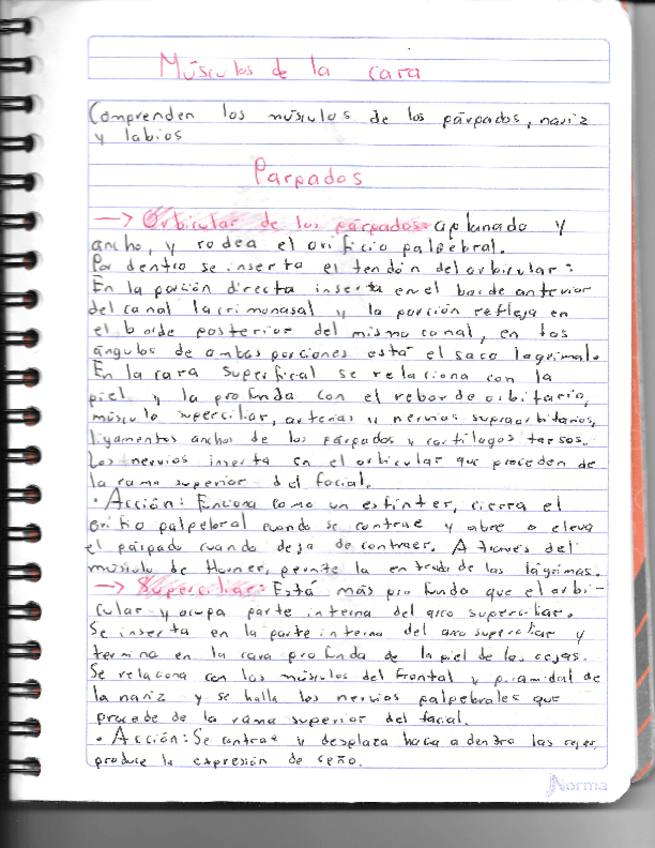 Músculos de la cara
Comprenden los músculos de los párpados, nariz
y labios
Parpados
→ Orbicular de los párpados: aplanado y
ancho, y rodea el orificio palpebral.
Por dentro se inserta el tendón del orbicular:
En la porción directa inserta en el borde anterior
del canal lacrimonasal y la porción refleja en
el borde posterior del mismo canal, en los
ángulos de ambas porciones está el saco lagrimal.
En la cara superfical se relaciona con la
piel y la profunda con el reborde orbitario,
músculo superciliar, arterias y nervios supraorbitarios,
ligamentos anchos de los párpados y cartílagos tarsos.
Los nervios inserta en el orbicular que proceden de
la rama superior del facial.
• Acción: Funciona como un esfínter, cierra el
orifio palpebral cuando se contrae y abre o eleva
el párpado cuando deja de contraer. A través del
músculo de Horner, permite la entrada de las lágrimas.
→ Superciliar: Está más profundo que el orbi-
cular y ocupa parte interna del arco superciliar.
Se inserta en la parte interna del arco superciliar y
termina en la cara profunda de la piel de las cejas.
Se relaciona con los músculos del frontal y piramidal de
la nariz y se halla los nervios palpebrales que
procede de la rama superior del facial.
• Acción: Se contrae y desplaza hacia adentro las cejas,
produce la expresión de ceño.
Norma